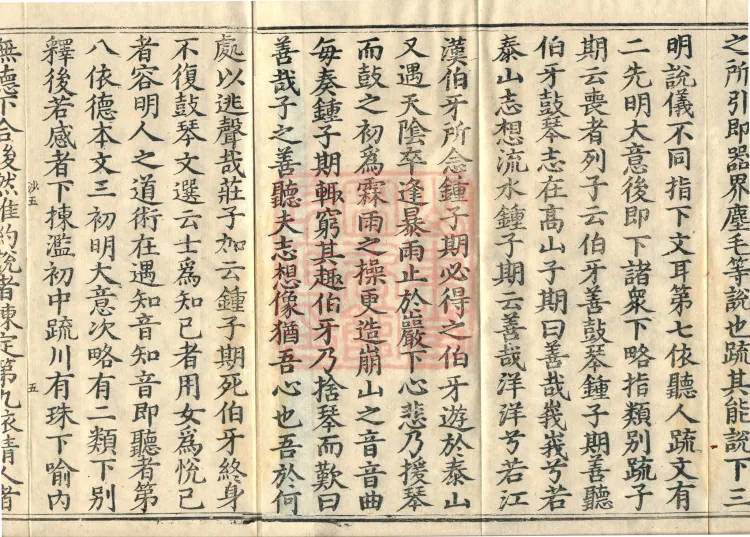 之所引即器界塵毛等說也疏其能說下三
明說儀不同指下文耳第七依聽人疏文有
二先明大意後即下諸衆下略指類別疏子
期云喪者列子云伯牙善鼓琴鍾子期善聽
伯牙鼓琴志在高山子期曰善哉峩峩兮若
泰山志想流水鍾子期云善哉洋洋兮若江
漢伯牙所念鍾子期必得之伯牙遊於泰山
又遇天陰卒逢暴雨止於巖下心悲乃援琴
而鼓之初爲霖雨之操更造崩山之音音曲
每奏鍾子期輒窮其趣伯牙乃捨琴而歎曰
善哉子之善聽夫志想像猶吾心也吾於何
處以逃聲哉莊子加云鍾子期死伯牙終身
不復鼓琴文選云士爲知己者用女爲悅己
者容明人之道術在遇知音知音即聽者第
八依德本文三初明大意次略有二類下別
釋後若感者下揀濫初中疏川有珠下喻內
沙五
五
無德下合後然准約說者揀定第九依請人者